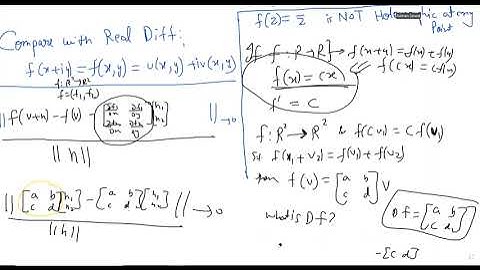 Compare with Real Diff:
f(x+iy) = f(x,y) = u(x,y) + iv(x,y)
f: R² → R²
f = (f₁, f₂)
|| f(v+h) - f(v) - [∂f₁/∂x ∂f₁/∂y; ∂f₂/∂x ∂f₂/∂y] [h₁; h₂] || → 0
|| h ||
|| [a b; c d] [h₁; h₂] - [a b; c d] [h₁; h₂] || → 0
|| h ||
f(z) = z̄ is NOT Holomorphic at any
Point
If f: R → R f(x+y) = f(x) + f(y)
f(x) = cx
f(cx) = cf(x)
f' = c
f: R² → R² & f(cv₁) = cf(v₁)
f(v₁ + v₂) = f(v₁) + f(v₂)
then f(v) = [a b; c d] v
what is Df?
Df = [a b; c d]
-[c d]